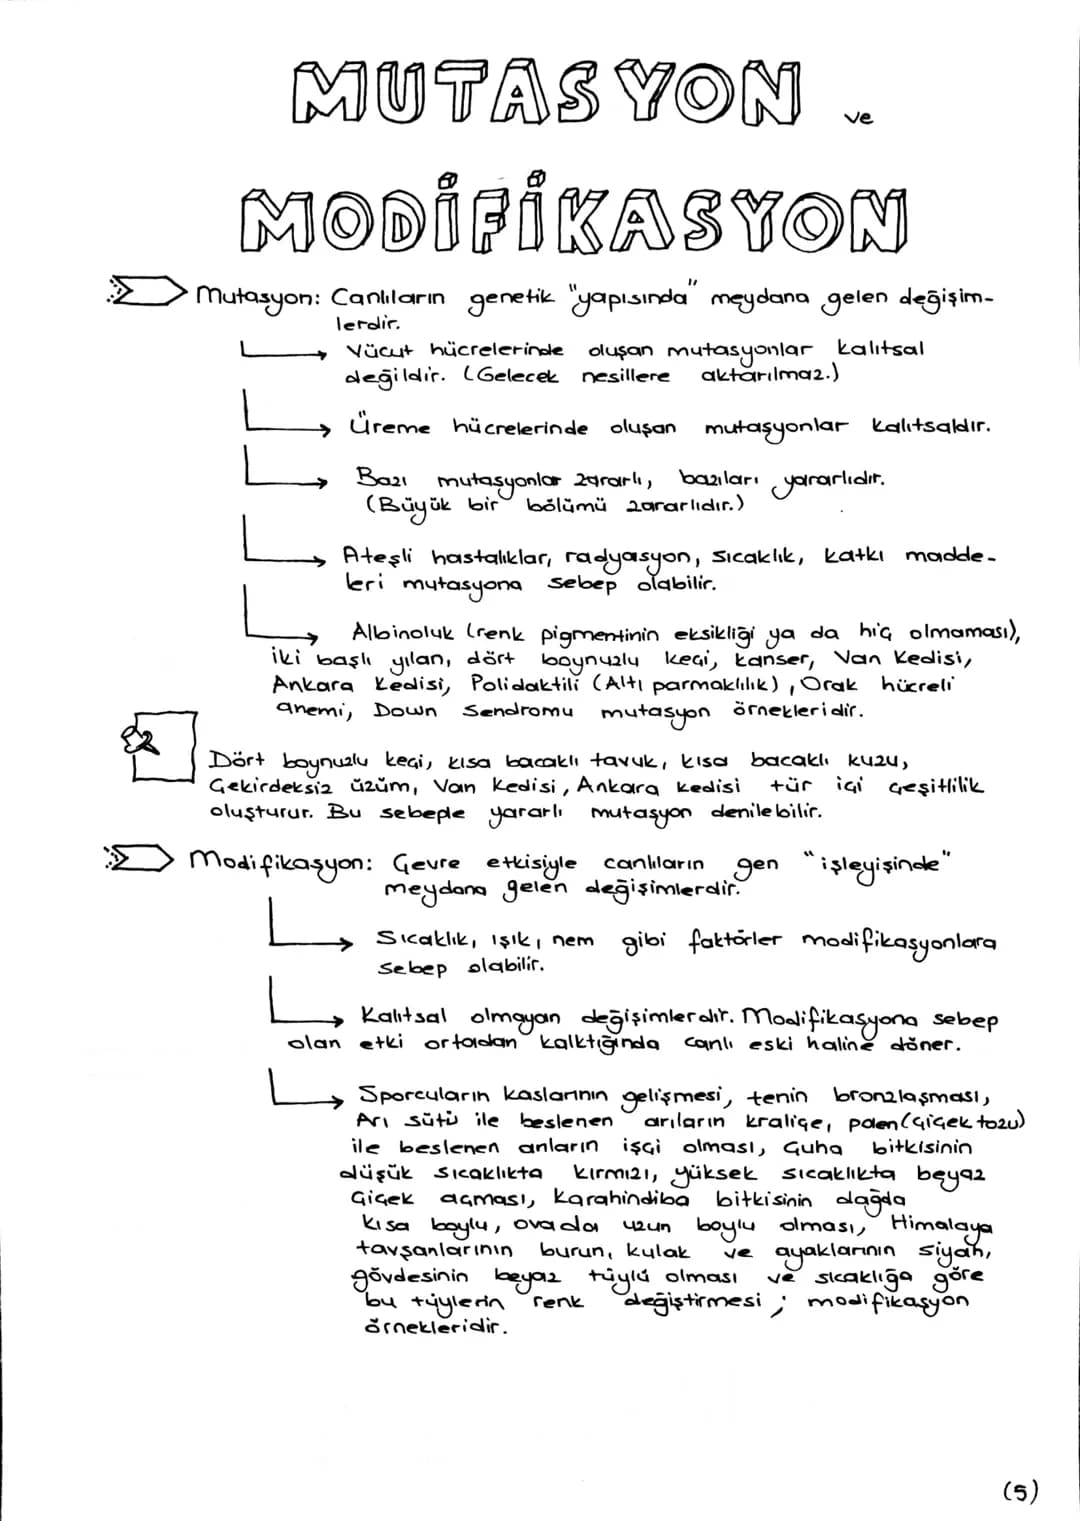 MUTASYON ve
MODİFİKASYON
Mutasyon: Canlıların genetik "yapısında" meydana gelen değişim-
lerdir.
Vücut hücrelerinde oluşan mutasyonlar kalıtsal
değildir. (Gelecek nesillere aktarılmaz.)
Üreme hücrelerinde oluşan mutasyonlar kalıtsaldır.
Bazı mutasyonlar zararlı, bazıları yararlıdır.
(Büyük bir bölümü zararlıdır.)
Ateşli hastalıklar, radyasyon, sıcaklık, katkı madde-
leri mutasyona sebep olabilir.
Albinoluk (renk pigmentinin eksikliği ya da hiç olmaması),
iki başlı yılan, dört boynuzlu keçi, kanser, Van Kedisi,
Ankara Kedisi, Polidaktili (Altı parmaklılık), Orak hücreli
anemi, Down Sendromu mutasyon örnekleridir.
Dört boynuzlu keçi, kısa bacaklı tavuk, kısa bacaklı kuzu,
Çekirdeksiz üzüm, Van Kedisi, Ankara kedisi tür içi çeşitlilik
oluşturur. Bu sebeple yararlı mutasyon denilebilir.
Modifikasyon: Çevre etkisiyle canlıların gen "işleyişinde"
meydana gelen değişimlerdir.
Sıcaklık, ışık, nem gibi faktörler modifikasyonlara
sebep olabilir.
Kalıtsal olmayan değişimlerdir. Modifikasyona sebep
olan etki ortadan kalktığında canlı eski haline döner.
Sporcuların kaslarının gelişmesi, tenin bronzlaşması,
Arı sütü ile beslenen arıların kraliçe, polen (çiçek tozu)
ile beslenen arıların işçi olması, Çuha bitkisinin
düşük sıcaklıkta kırmızı, yüksek sıcaklıkta beyaz
Çiçek açması, Karahindiba bitkisinin dağda
kısa boylu, ovada uzun boylu olması, Himalaya
tavşanlarının burun, kulak ve ayaklarının siyah,
gövdesinin beyaz tüylü olması ve sıcaklığa göre
bu tüylerin renk değiştirmesi ; modifikasyon
örnekleridir.
(5)